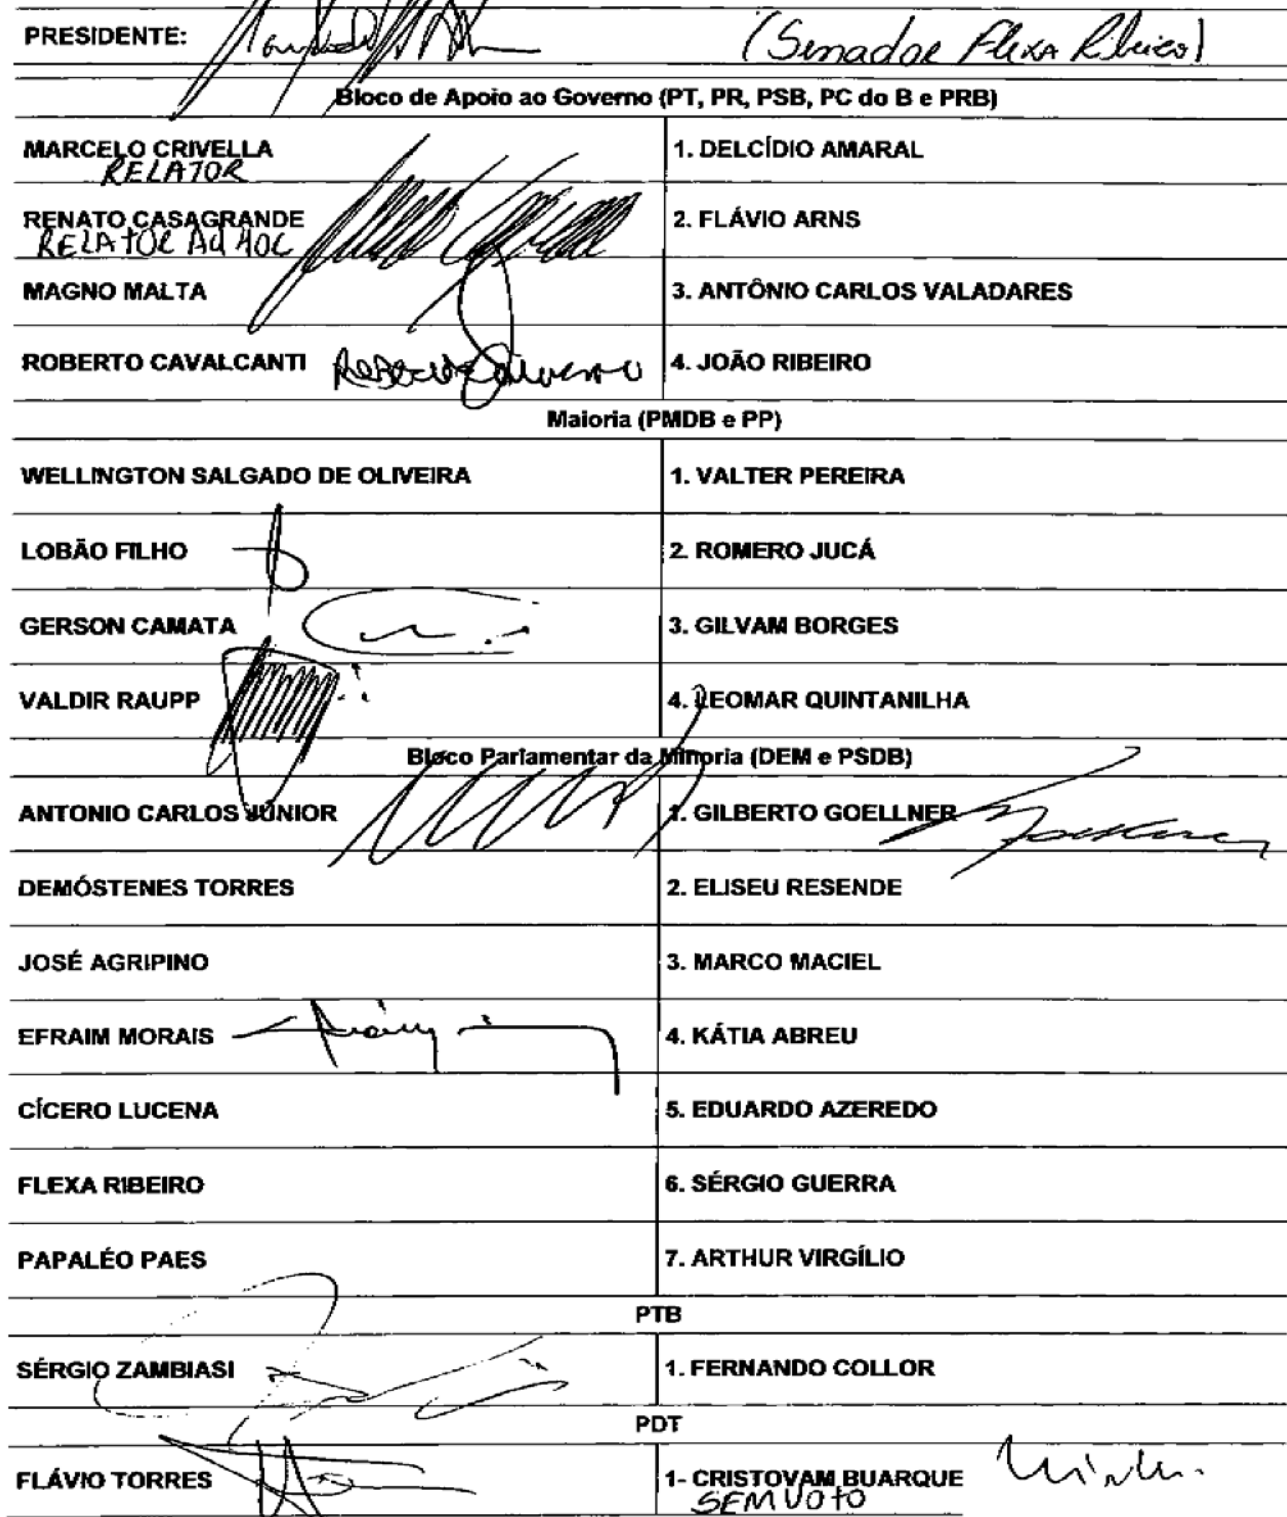 PRESIDENTE: (Senador Flexa Ribeiro)
Bloco de Apoio ao Governo (PT, PR, PSB, PC do B e PRB)
MARCELO CRIVELLA 1. DELCÍDIO AMARAL
RELATOR
RENATO CASAGRANDE 2. FLÁVIO ARNS
RELATOR AD HOC
MAGNO MALTA 3. ANTÔNIO CARLOS VALADARES
ROBERTO CAVALCANTI Roberto Cavalcanti 4. JOÃO RIBEIRO
Maioria (PMDB e PP)
WELLINGTON SALGADO DE OLIVEIRA 1. VALTER PEREIRA
LOBÃO FILHO 2. ROMERO JUCÁ
GERSON CAMATA 3. GILVAM BORGES
VALDIR RAUPP 4. LEOMAR QUINTANILHA
Bloco Parlamentar da Minoria (DEM e PSDB)
ANTONIO CARLOS JÚNIOR 1. GILBERTO GOELLNER
DEMÓSTENES TORRES 2. ELISEU RESENDE
JOSÉ AGRIPINO 3. MARCO MACIEL
EFRAIM MORAIS 4. KÁTIA ABREU
CÍCERO LUCENA 5. EDUARDO AZEREDO
FLEXA RIBEIRO 6. SÉRGIO GUERRA
PAPALÉO PAES 7. ARTHUR VIRGÍLIO
PTB
SÉRGIO ZAMBIASI 1. FERNANDO COLLOR
PDT
FLÁVIO TORRES 1- CRISTOVAM BUARQUE
SEM VOTO